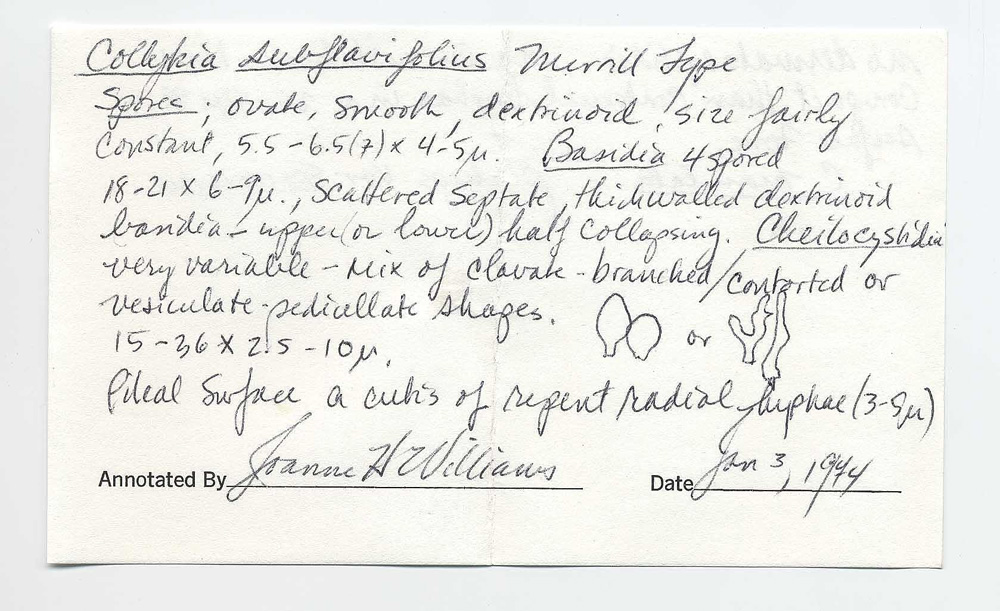 Collybia subflavifolius Murrill Type
Spores; ovate, smooth, dextrinoid, size fairly
constant, 5.5-6.5(7) x 4-5µ. Basidia 4 spored
18-21 x 6-9µ., scattered septate, thickwalled dextrinoid
basidia - upper (or lower) half collapsing. Cheilocystidia
very variable - mix of clavate - branched/contorted or
vesiculate-pedicellate shapes. or
15-36 x 2.5-10µ.
Pileal surface a cutis of repent radial hyphae (3-9µ)
Annotated By Joanne H Williams Date Jan 3, 1944